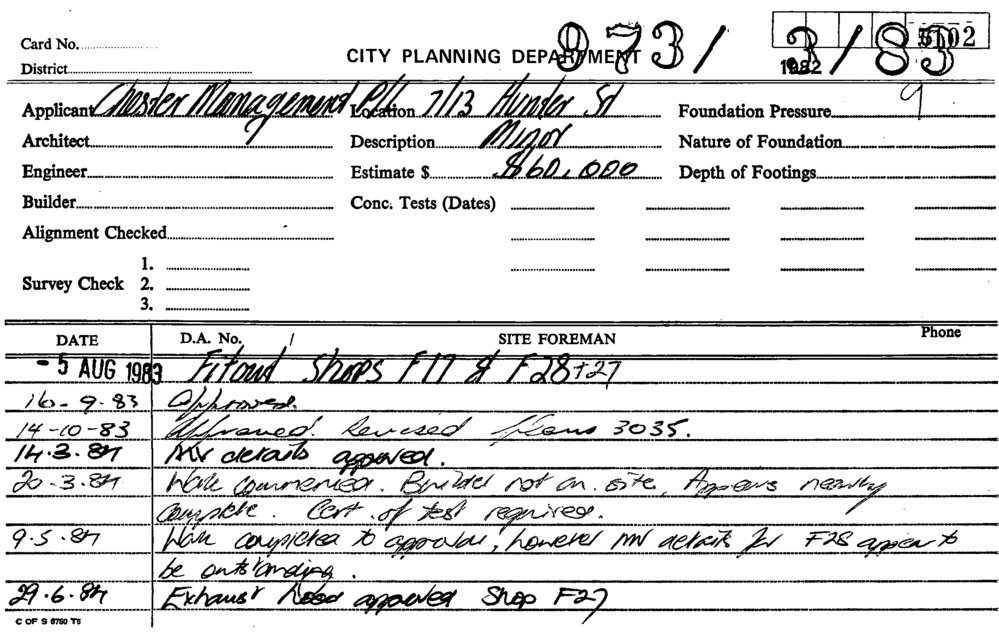 Card No.
District
CITY PLANNING DEPARTMENT
973/ 3/83
1982
5102
Applicant Chester Management P/L Location 7/13 Hunter St Foundation Pressure 9
Architect Description Minor Nature of Foundation
Engineer Estimate $ $60,000 Depth of Footings
Builder Conc. Tests (Dates)
Alignment Checked
1.
Survey Check 2.
3.
DATE D.A. No. / SITE FOREMAN Phone
- 5 AUG 1983 Fitout Shops F17 & F28+27
16-9-83 Approved.
14-10-83 Approved. Revised plans 3035.
14.3.84 MV details approved.
20-3.84 Work commenced. Builder not on site, Appears nearly
complete. Cert. of test required.
9.5.84 Work completed to approval, however MV details for F28 appear to
be outstanding.
29.6.84 Exhaust hood approved Shop F27
C OF S 6760 T6